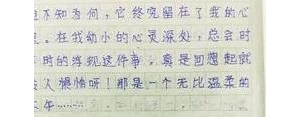 不知为何,它终究留在了我的心
。在我幼小的心灵深处,总会时
时的浮现这件事,真是回想起就
人懊恼呀!那是一个无比温柔的
午……